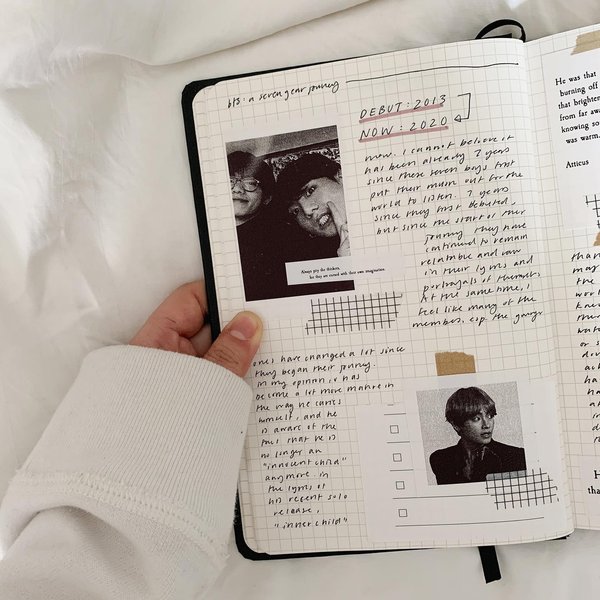 bts : a seven year journey
DEBUT : 2013
NOW : 2020
now. I cannot believe it
has been already 7 years
since these seven boys first
put their music out for the
world to listen. 7 years
since they first debuted,
but since the start of their
journey they have
continued to remain
relatable and raw
in their lyrics and
portrayals of themselves.
At the same time, I
feel like many of the
members, esp. the younger
ones have changed a lot since
they began their journey.
in my opinion v has
become a lot more mature in
the way he carries
himself, and he
is aware of the
fact that he is
no longer an
"innocent child"
anymore in
the lyrics of
his recent solo
release,
"inner child"
Always pity the thinkers,
for they are cursed with their own imagination.
He was that
burning off
that brighten
from far away
knowing so
was warm.
Atticus